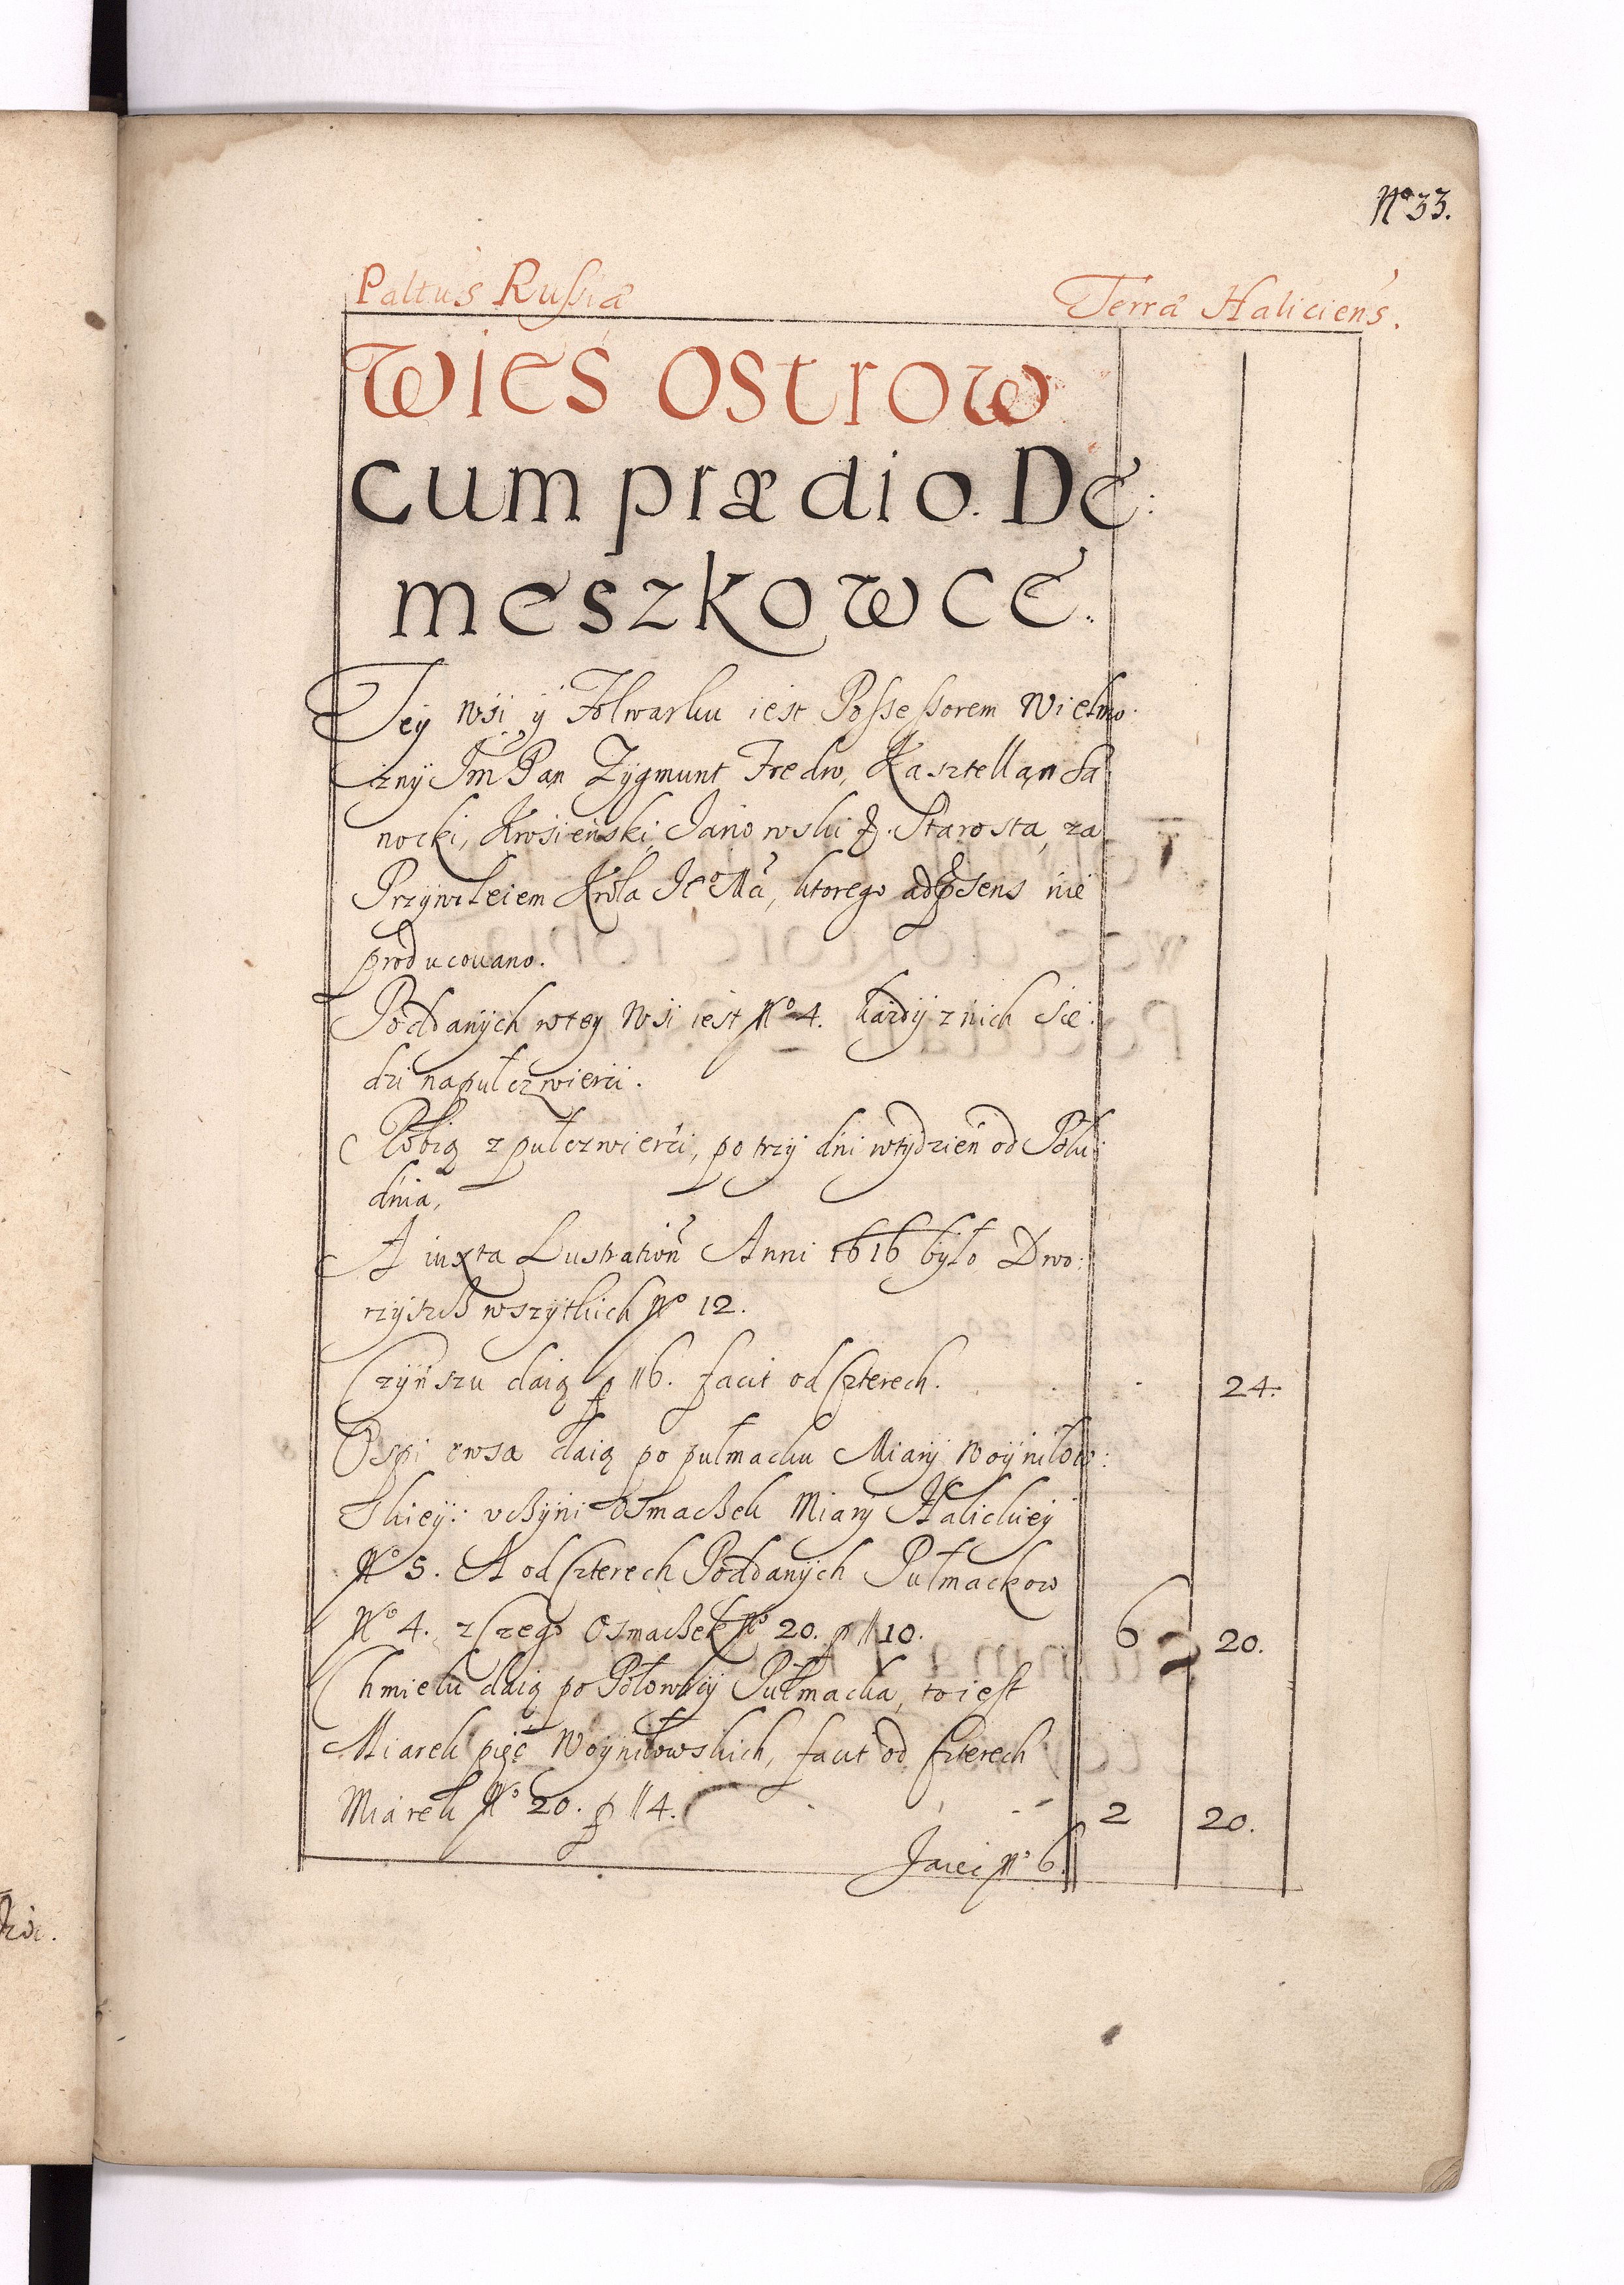 No 33.
Paltus Russiæ Terræ Haliciens.
Wieś Ostrow
cum prædio De:
meszkowce.
Tey wsi y Folwarku iest Possessorem Wielmo:
żny Im Pan Zygmunt Fredro, Kasztellan Sa
nocki, Krosieński, Janowski &. Starosta, za
Przywileiem Krola Je° Mći, ktorego ad præsens nie
producowano.
Poddanych w tey wsi iest No 4. każdy z nich sie:
dzi na pułczwierci.
Robią z pułczwierci, po trzy dni w tydzień od Połu:
dnia,
A iuxta Lustration Anni 1616 było Dwo:
rzyszcz wszytkich No 12.
Czynszu daią p 6. facit od Czterech. 24.
Ospi owsa daią po pułmacku Miary Woyniłow:
skiey: vczyni Osmaczek Miary Halickiey
No 5. A od Czterech Poddanych Pułmackow
No 4. z Czego Osmaczek No 20. p 10. 6 20.
Chmielu daią po Połowicy Pułmacka, to iest
Miarek pięć Woyniłowskich, facit od Czterech
Miarek No 20. p 4. 2 20.
No 6.